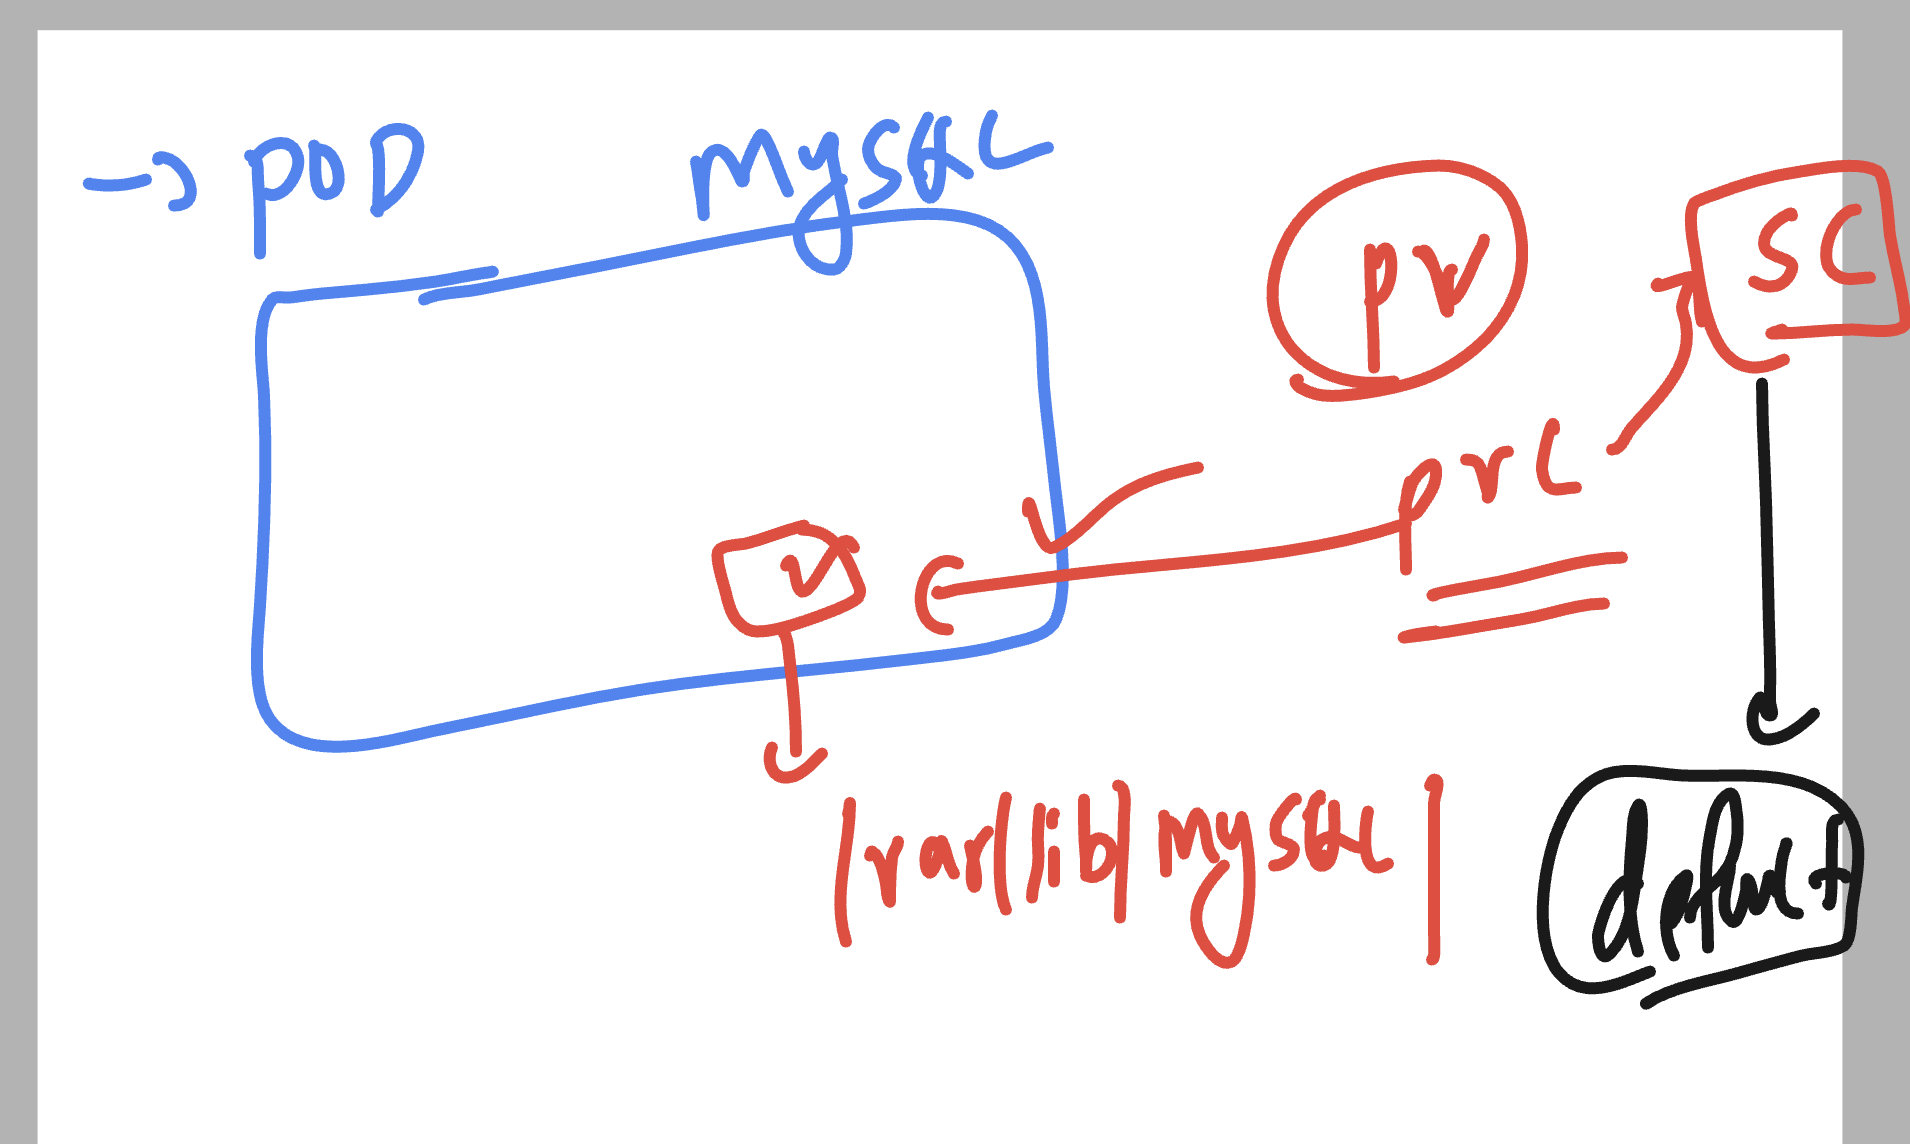 → POD MySQL
PV
SC
PVC
V
/var/lib/mysql/
default